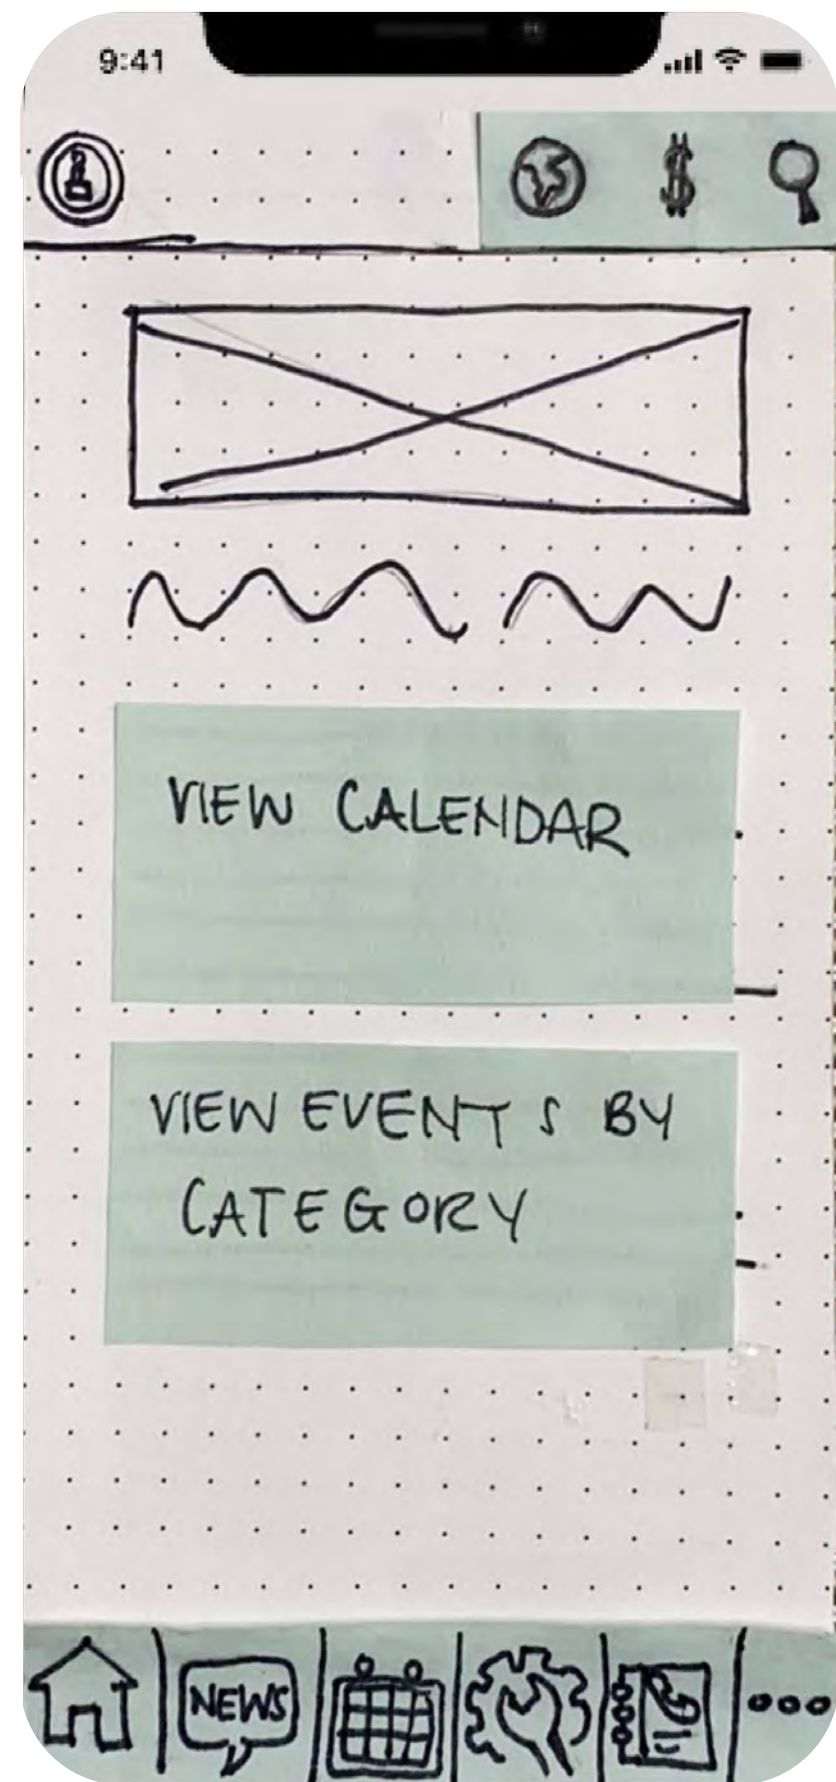 9:41
VIEW CALENDAR
VIEW EVENTS BY
CATEGORY
NEWS